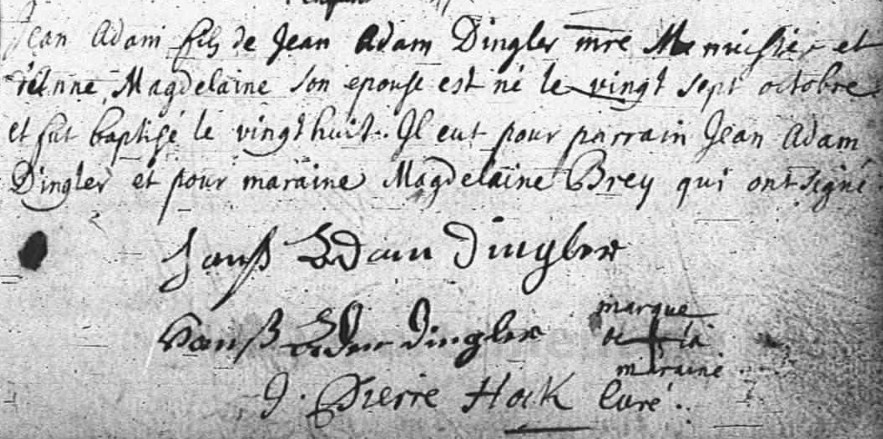 Jean Adam fils de Jean Adam Dingler mre Menuisier et
Magdelaine son epouse est né le vingt sept octobre
et fut baptisé le vingt huit. Il eut pour parrain Jean Adam
Dingler et pour maraine Magdelaine Brey qui ont signé.
Hanß Adam Dingler
Hanß Dingler
marque
de la
maraine
Pierre Hock Curé.